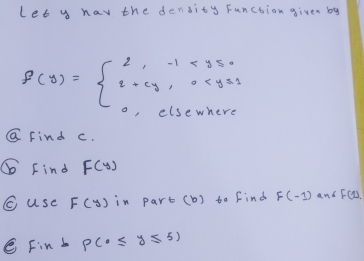 Let y hav the density Function given by
f(y) = { 2, -1 < y ≤ 0
2 + cy, 0 < y ≤ 1
0, elsewhere
ⓐ Find c.
ⓑ Find F(y)
ⓒ Use F(y) in part (b) to find F(-1) and F(1).
ⓔ Find P(0 ≤ y ≤ 5)